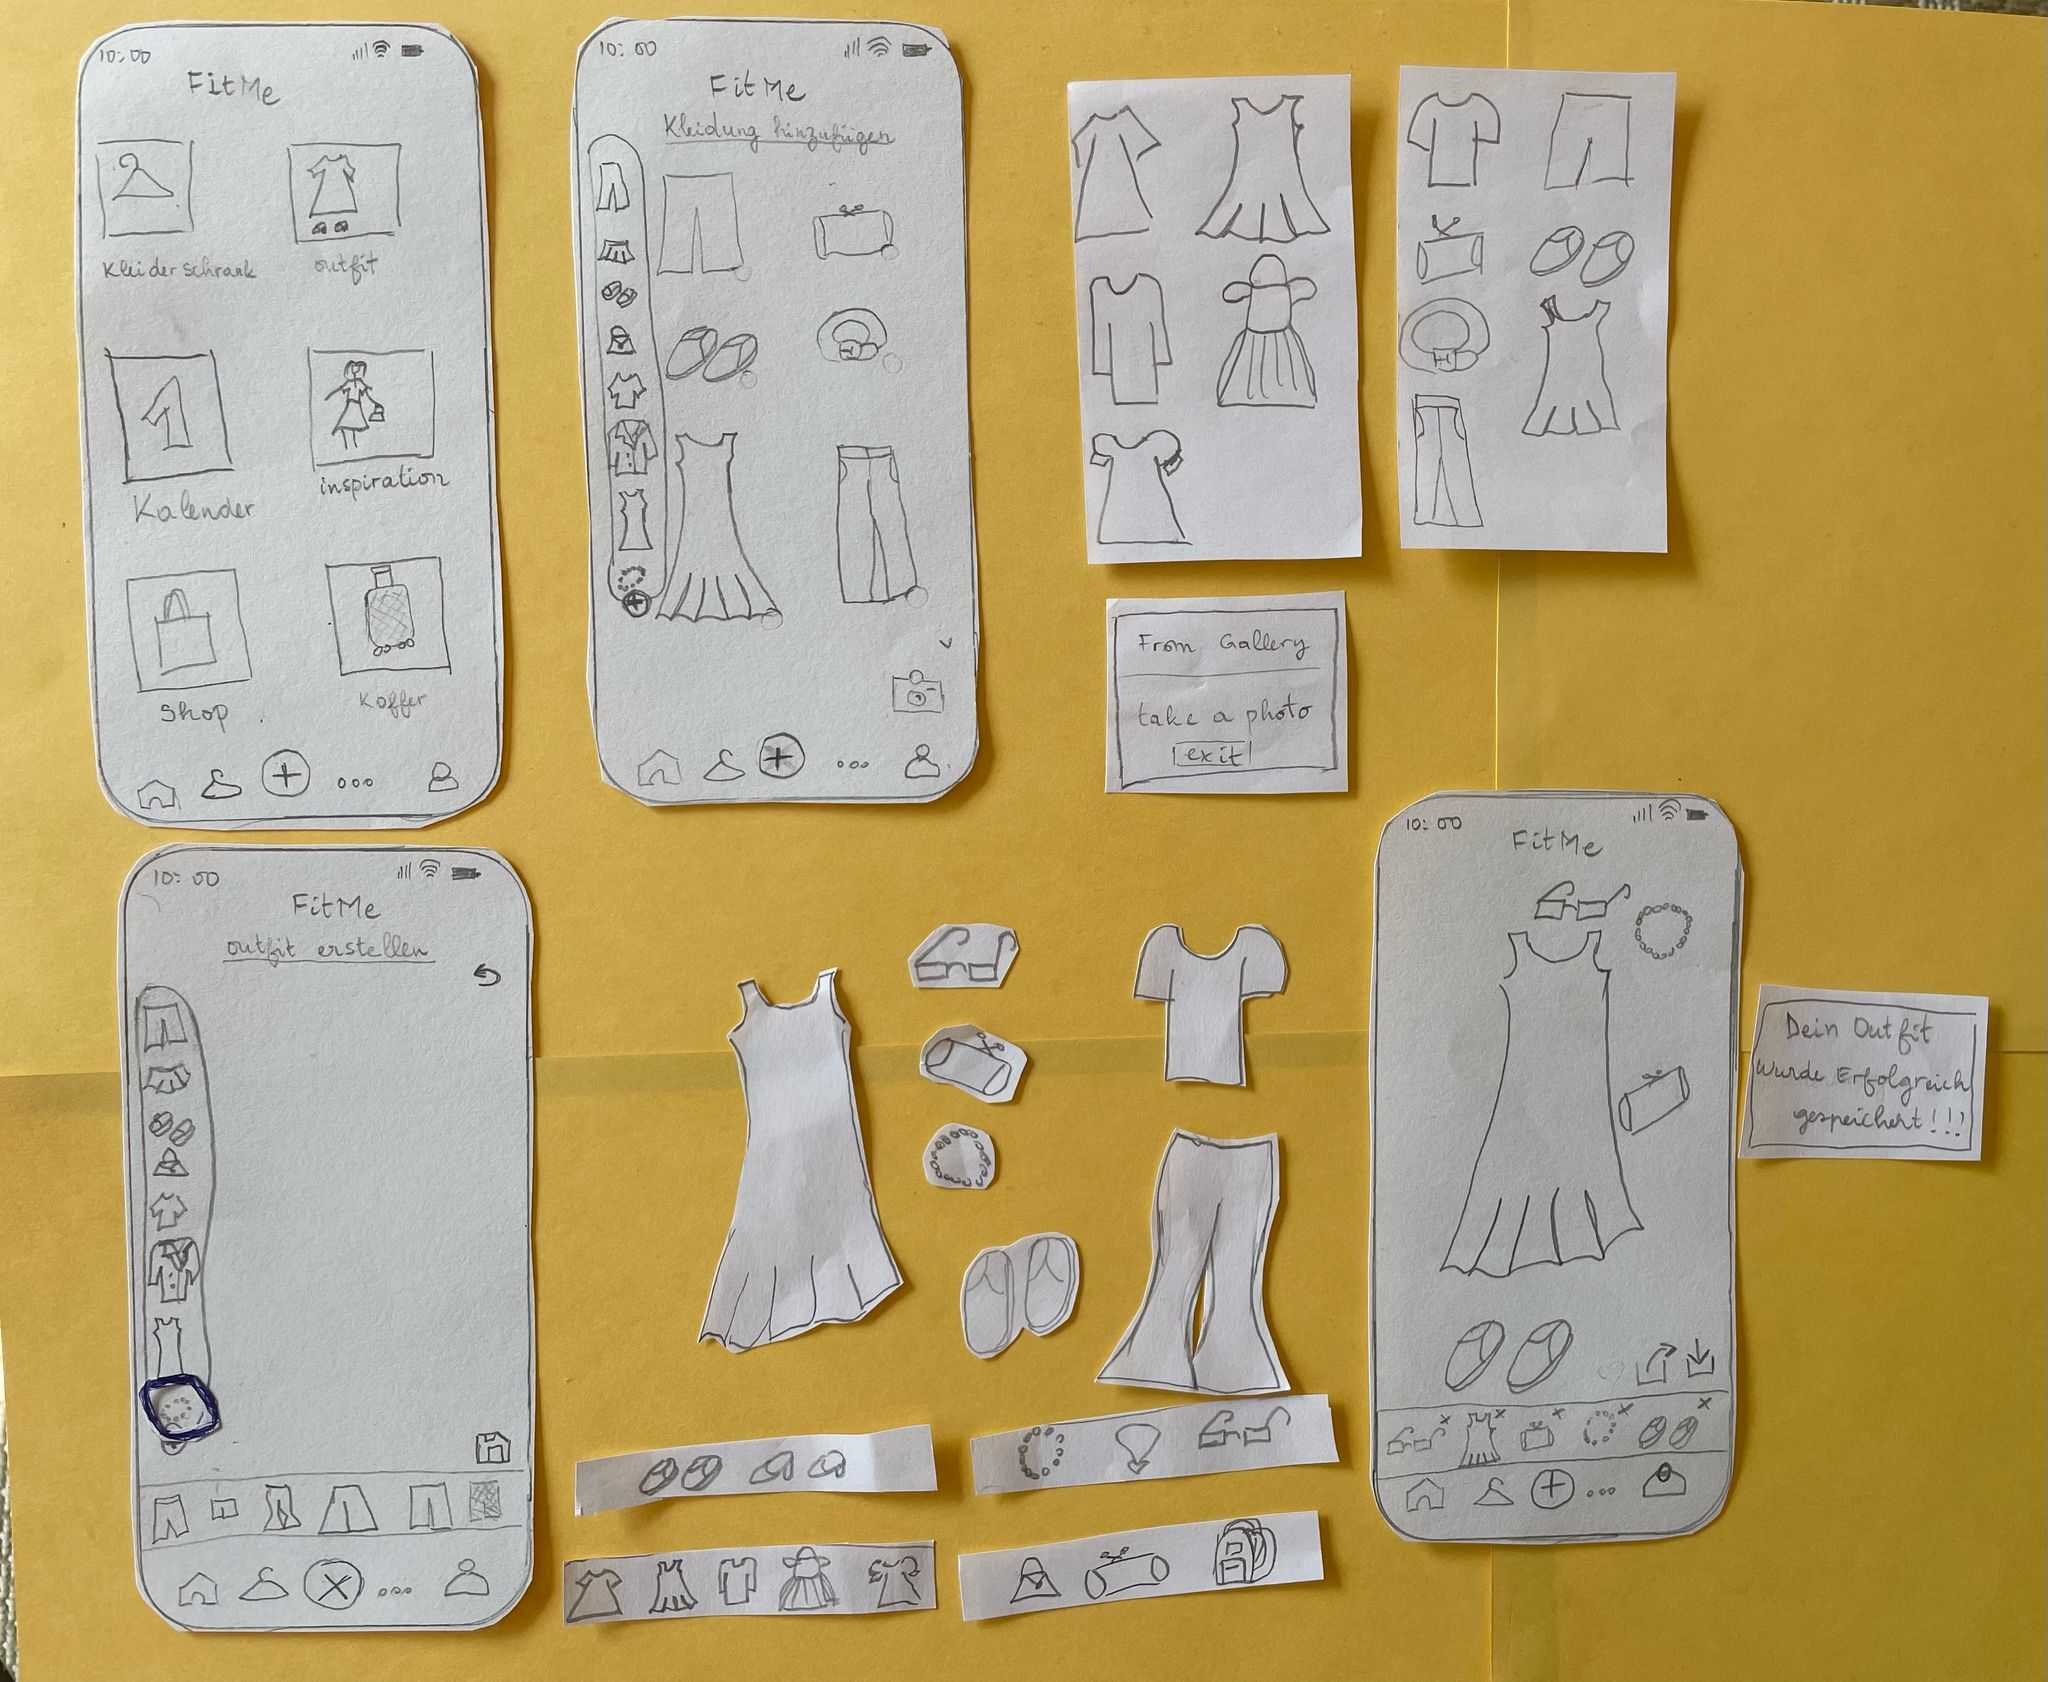 10:00
FitMe
Kleiderschrank
outfit
Kalender
inspiration
Shop
Koffer
10:00
FitMe
Kleidung hinzufügen
From Gallery
take a photo
exit
10:00
FitMe
outfit erstellen
10:00
FitMe
Dein Outfit
wurde Erfolgreich
gespeichert!!!